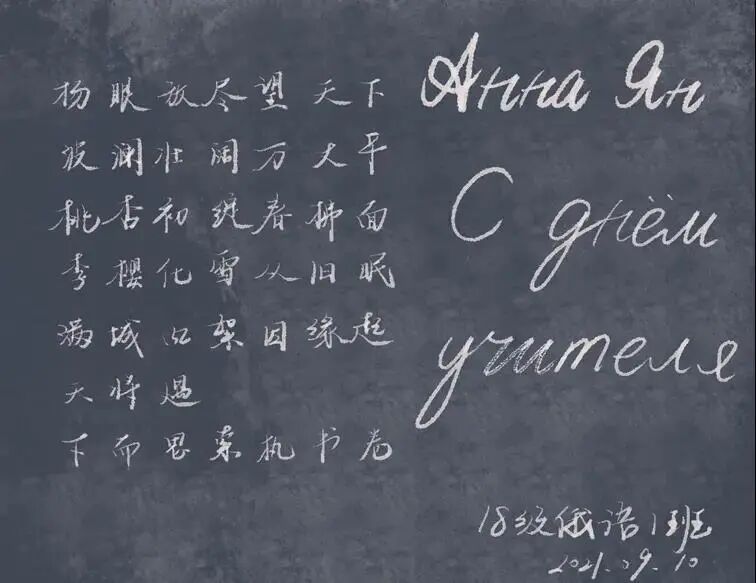 杨眼放尽望天下
放澜壮阔万大平
桃杏初绽春拂面
李樱化雪从旧眠
满城架因缘起
天将
下而思索执书卷
Анна Ян
С днём
учителя
18级俄语1班
2021.09.10